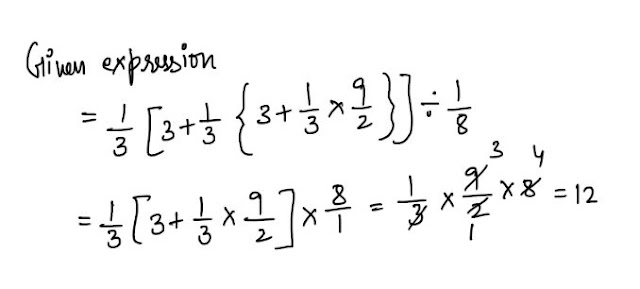 Given expression
= 1/3 [3 + 1/3 {3 + 1/3 × 9/2}] ÷ 1/8
= 1/3 [3 + 1/3 × 9/2] × 8/1 = 1/3 × 9/2 × 8 = 12
3 4
1